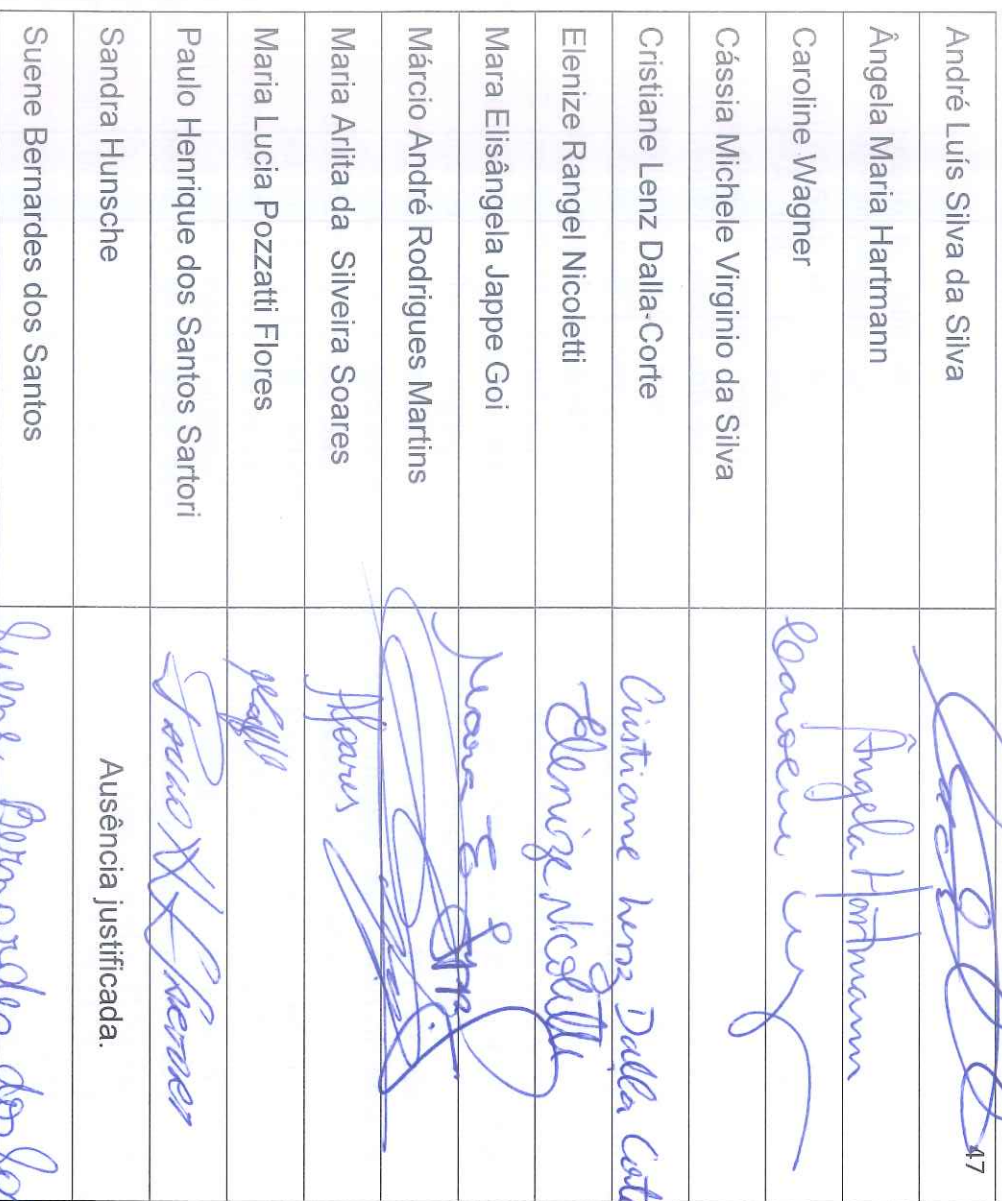 47
André Luís Silva da Silva
Ângela Maria Hartmann Ângela Hartmann
Caroline Wagner
Cássia Michele Virginio da Silva
Cristiane Lenz Dalla-Corte Cristiane Lenz Dalla Corte
Elenize Rangel Nicoletti Elenize Nicoletti
Mara Elisângela Jappe Goi Mara E
Márcio André Rodrigues Martins
Maria Arlita da Silveira Soares
Maria Lucia Pozzatti Flores
Paulo Henrique dos Santos Sartori
Sandra Hunsche Ausência justificada.
Suene Bernardes dos Santos Suene Bernardes dos